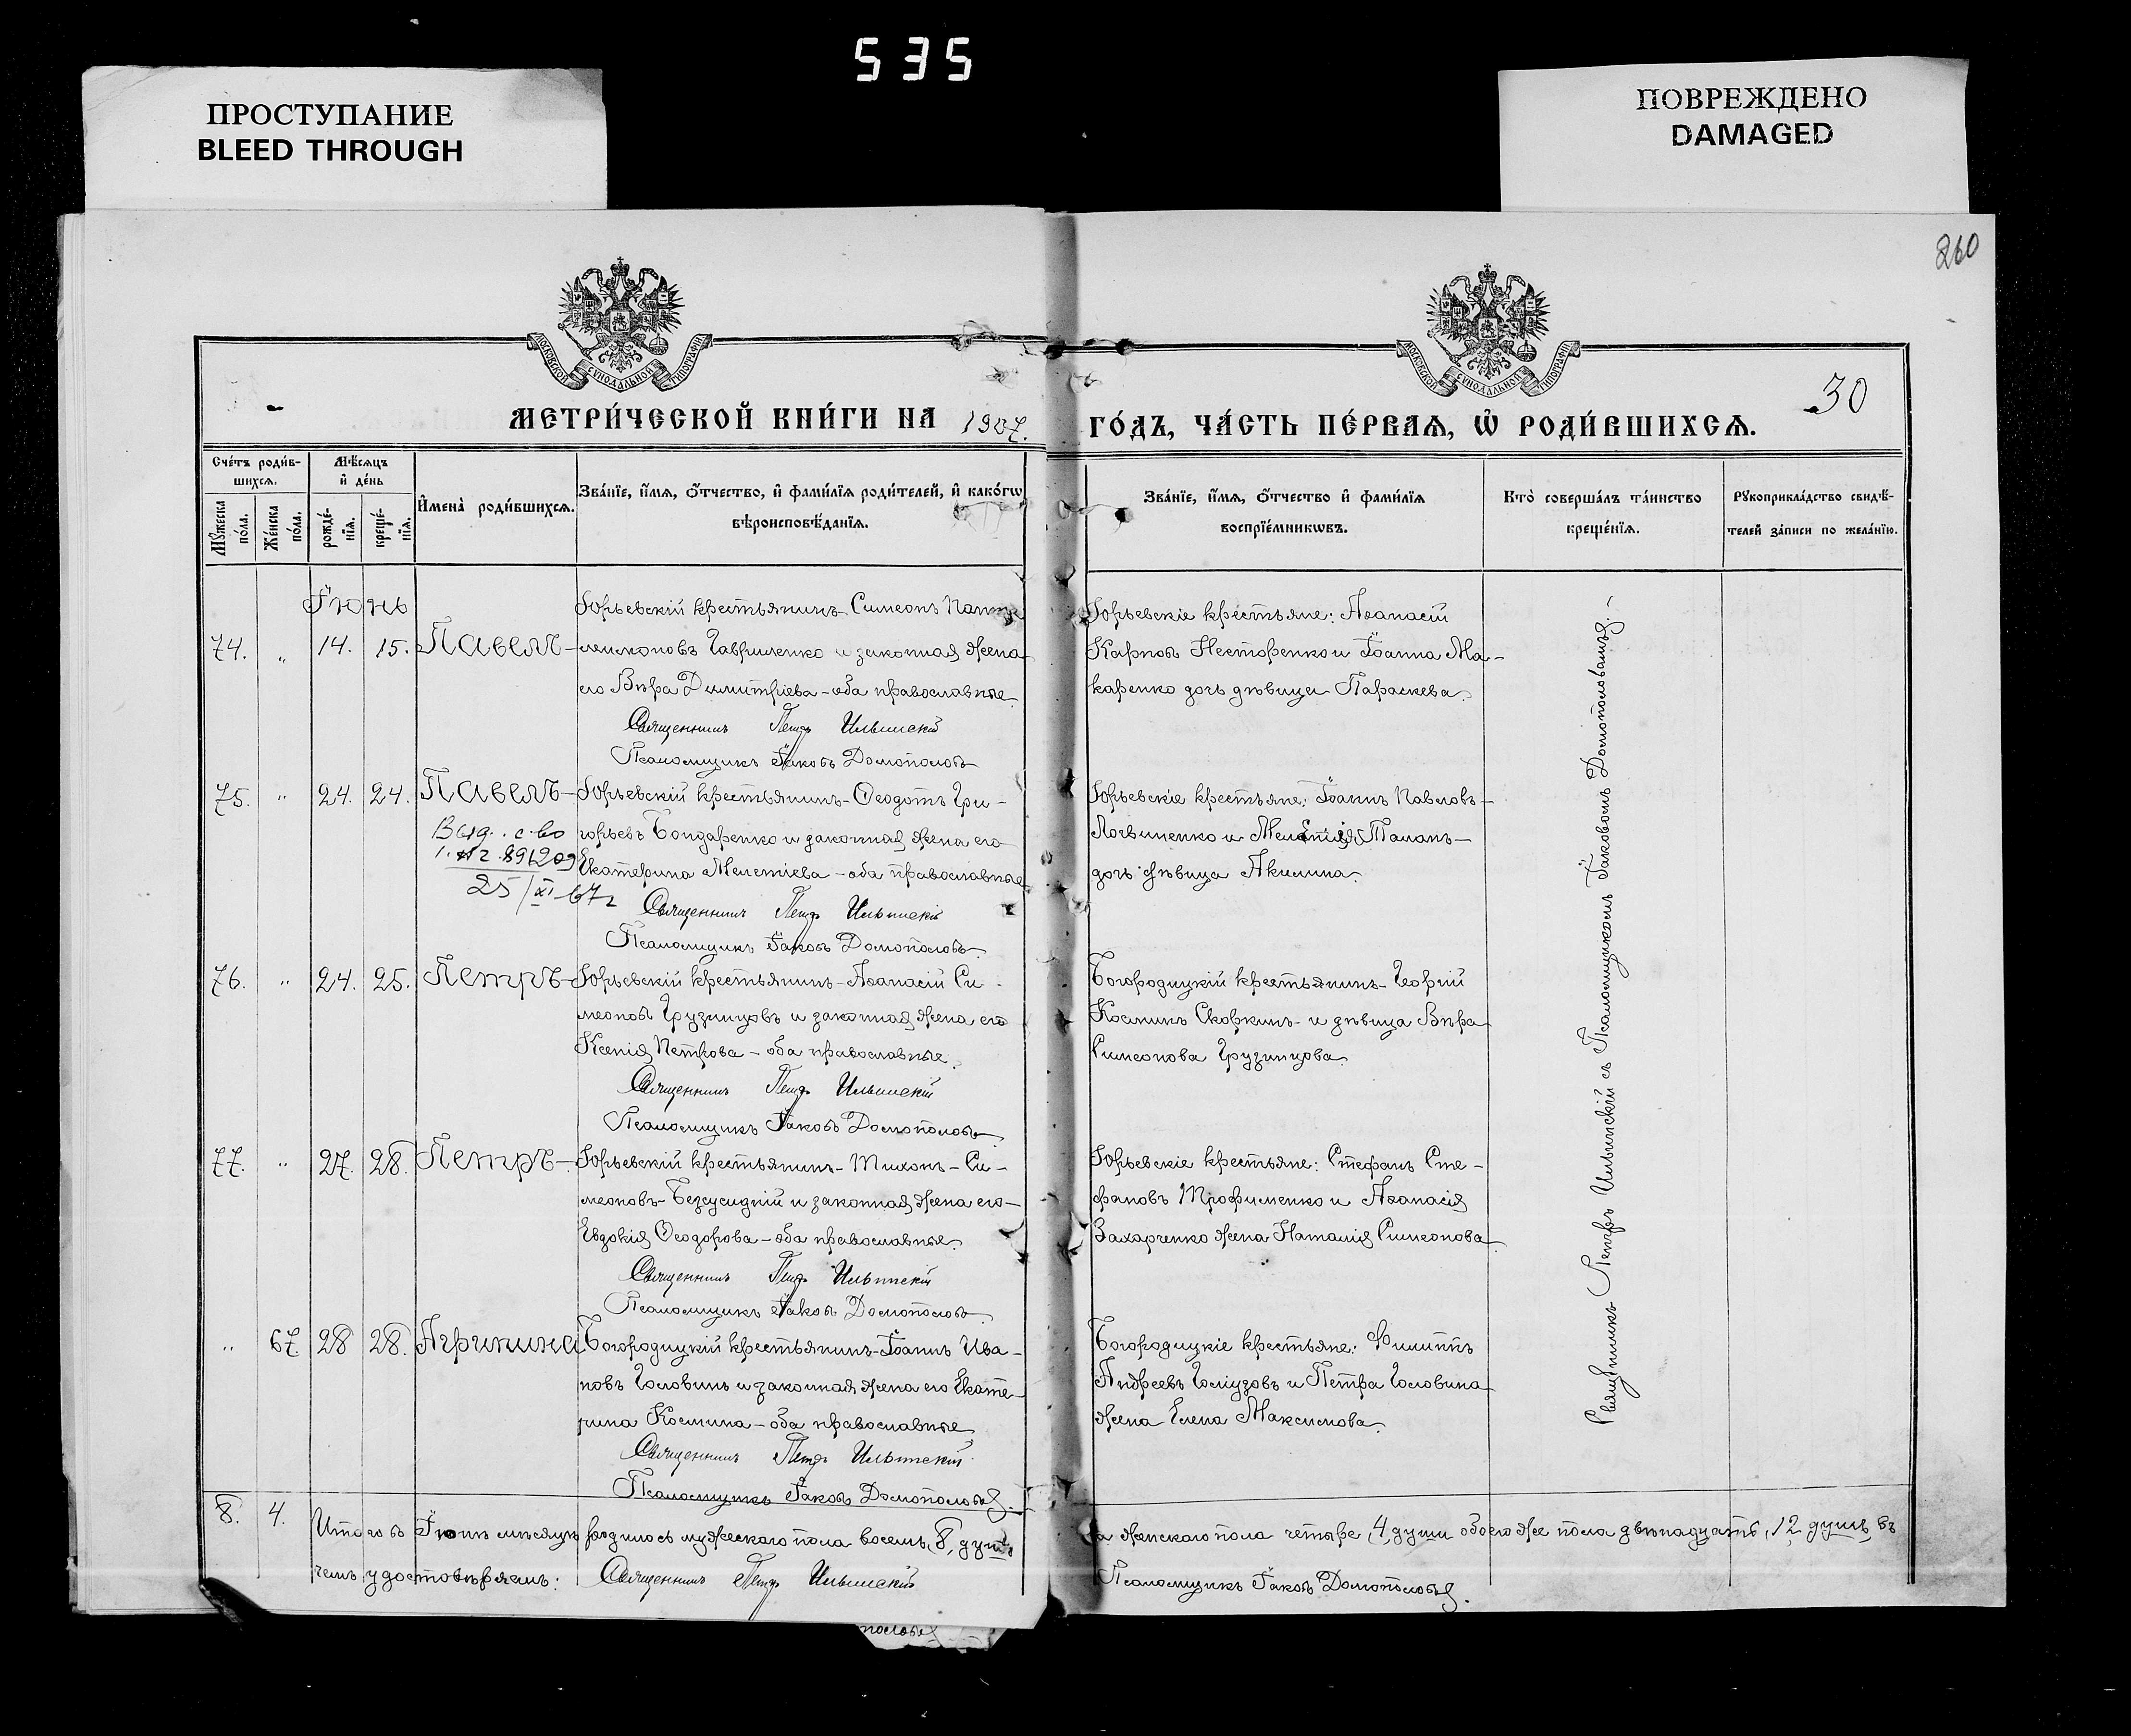 535
ПРОСТУПАНИЕ
BLEED THROUGH
ПОВРЕЖДЕНО
DAMAGED
260
МОСКОВСКОЙ СУНОДАЛЬНОЙ ТИПОГРАФІИ
МОСКОВСКОЙ СУНОДАЛЬНОЙ ТИПОГРАФІИ
30
МЕТРИ́ЧЕСКОЙ КНИ́ГИ НА 1907. ГО́ДЪ, ЧА́СТЬ ПЕ́РВАѦ, Ѡ҆ РОДИ́ВШИХСѦ.
Сче́тъ роди́в-
шихсѧ.
Мꙋ́жеска по́ла.
Же́нска по́ла.
Мѣ́сѧцъ
и҆ де́нь
рожде́-
нїѧ.
креще́-
нїѧ.
И҆мена̀ роди́вшихсѧ.
Зва́нїе, и҆́мѧ, ѻ҆́тчество, и҆ фами́лїѧ роди́телей, и҆ како́гѡ
вѣроисповѣ́данїѧ.
Зва́нїе, и҆́мѧ, ѻ҆́тчество и҆ фами́лїѧ
воспрїе́мникѡвъ.
Кто̀ соверша́лъ та́инство
креще́нїѧ.
Рꙋкоприкла́дство свидѣ́-
телей за́писи по жела́нїю.
Іюнь
74. " 14. 15. Павелъ-
Юрьевскій крестьянинъ-Симеонъ Панте
леимоновъ Гавриленко и законная жена
его Вѣра Димитріева-оба православные.
Священникъ Петръ Ильинскій
Псаломщикъ Іаковъ Домополовъ
Юрьевскіе крестьяне: Аѳанасій
Карповъ Несторенко и Іоанна Ма-
каренко дочь дѣвица Параскева.
75. " 24. 24. Павелъ-
Выд. с-во
25/XI-67г
Юрьевскій крестьянинъ-Ѳеодотъ Гри-
горьевъ Бондаренко и законная жена его
Екатерина Мелетіева-оба православные
Священникъ Петръ Ильинскій
Псаломщикъ Іаковъ Домополовъ.
Юрьевскіе крестьяне: Іоаннъ Павловъ-
Логвиненко и Мелетія Таланъ-
дочь дѣвица Акилина.
76. " 24. 25. Петръ-
Юрьевскій крестьянинъ-Аѳанасій Си-
меоновъ Грузинцовъ и законная жена его
Ксенія Петрова-оба православные.
Священникъ Петръ Ильинскій
Псаломщикъ Іаковъ Домополовъ.
Богородицкій крестьянинъ-Георгій
Косминъ Скоркинъ-и дѣвица Вѣра
Симеонова Грузинцова.
77. " 27. 28. Петръ-
Юрьевскій крестьянинъ-Тихонъ-Си-
меоновъ-Безсусидній и законная жена его-
Евдокія Ѳеодорова-оба православные.
Священникъ Петръ Ильинскій
Псаломщикъ Іаковъ Домополовъ.
Юрьевскіе крестьяне: Стефанъ Сте-
фановъ Трофименко и Аѳанасія
Захарченко жена Наталія Симеонова.
" 67. 28 28. Агрипина
Богородицкій крестьянинъ-Іоаннъ Ива-
новъ Головинъ и законная жена его Екате-
рина Космина-оба православные
Священникъ Петръ Ильинскій
Псаломщикъ Іаковъ Домополовъ.
Богородицкіе крестьяне: Филиппъ
Андреевъ и Петра Головина
жена Елена Максимова.
Священникъ Петръ Ильинскій съ Псаломщикомъ Іаковомъ Домополовымъ.-
8. 4.
Итого въ Іюнѣ мѣсяцѣ родилось мужескаго пола восемь, 8, душъ,
а женскаго пола четыре, 4, души обоего же пола двѣнадцать, 12 душъ, въ
чемъ удостовѣряемъ: Священникъ Петръ Ильинскій
Псаломщикъ Іаковъ Домополовъ.